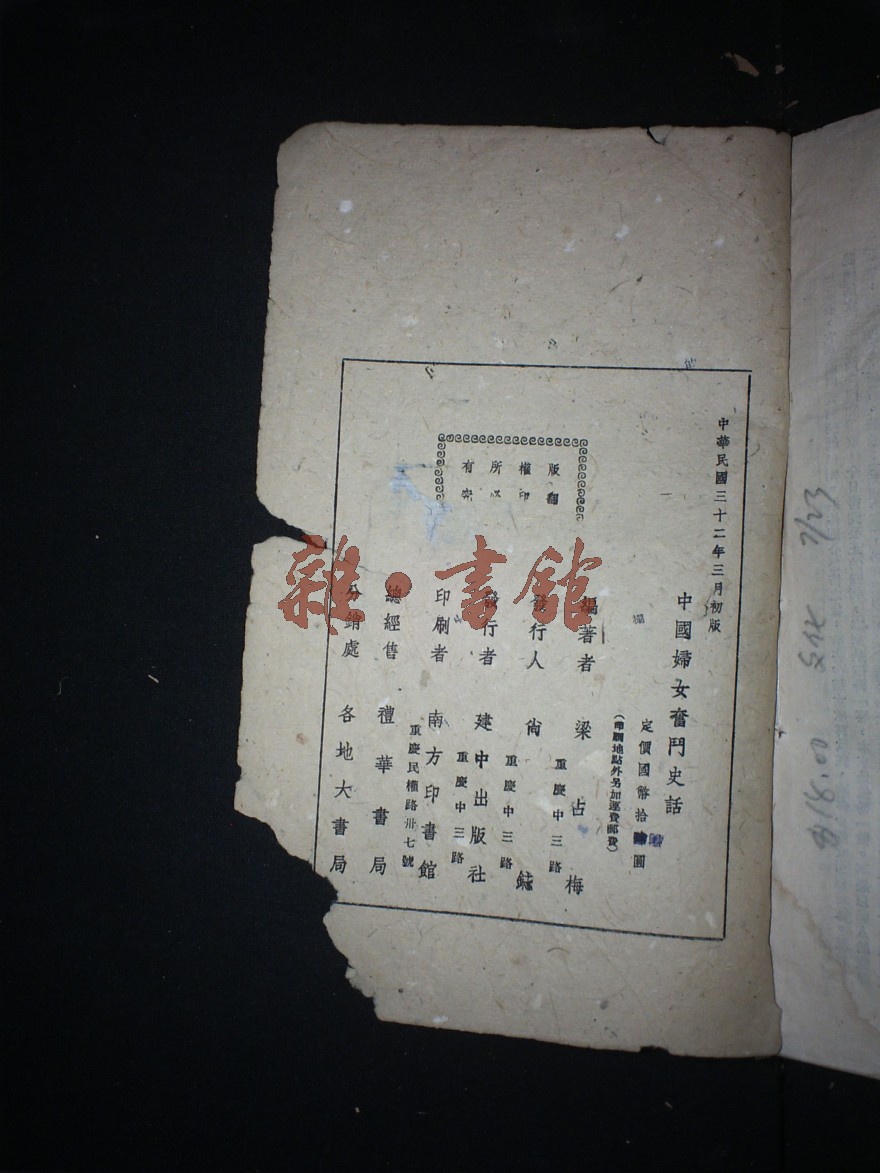 中華民國三十二年三月初版
中國婦女奮鬥史話
定價國幣拾圓
(印刷地點外另加運費郵費)
編著者 梁占梅
重慶中三路
發行人 尙
重慶中三路
發行者 建中出版社
重慶中三路
印刷者 南方印書館
重慶民權路卅七號
總經售 禮華書局
分銷處 各地大書局
版權所有
翻印必究
雜·書館
7/23
18.00